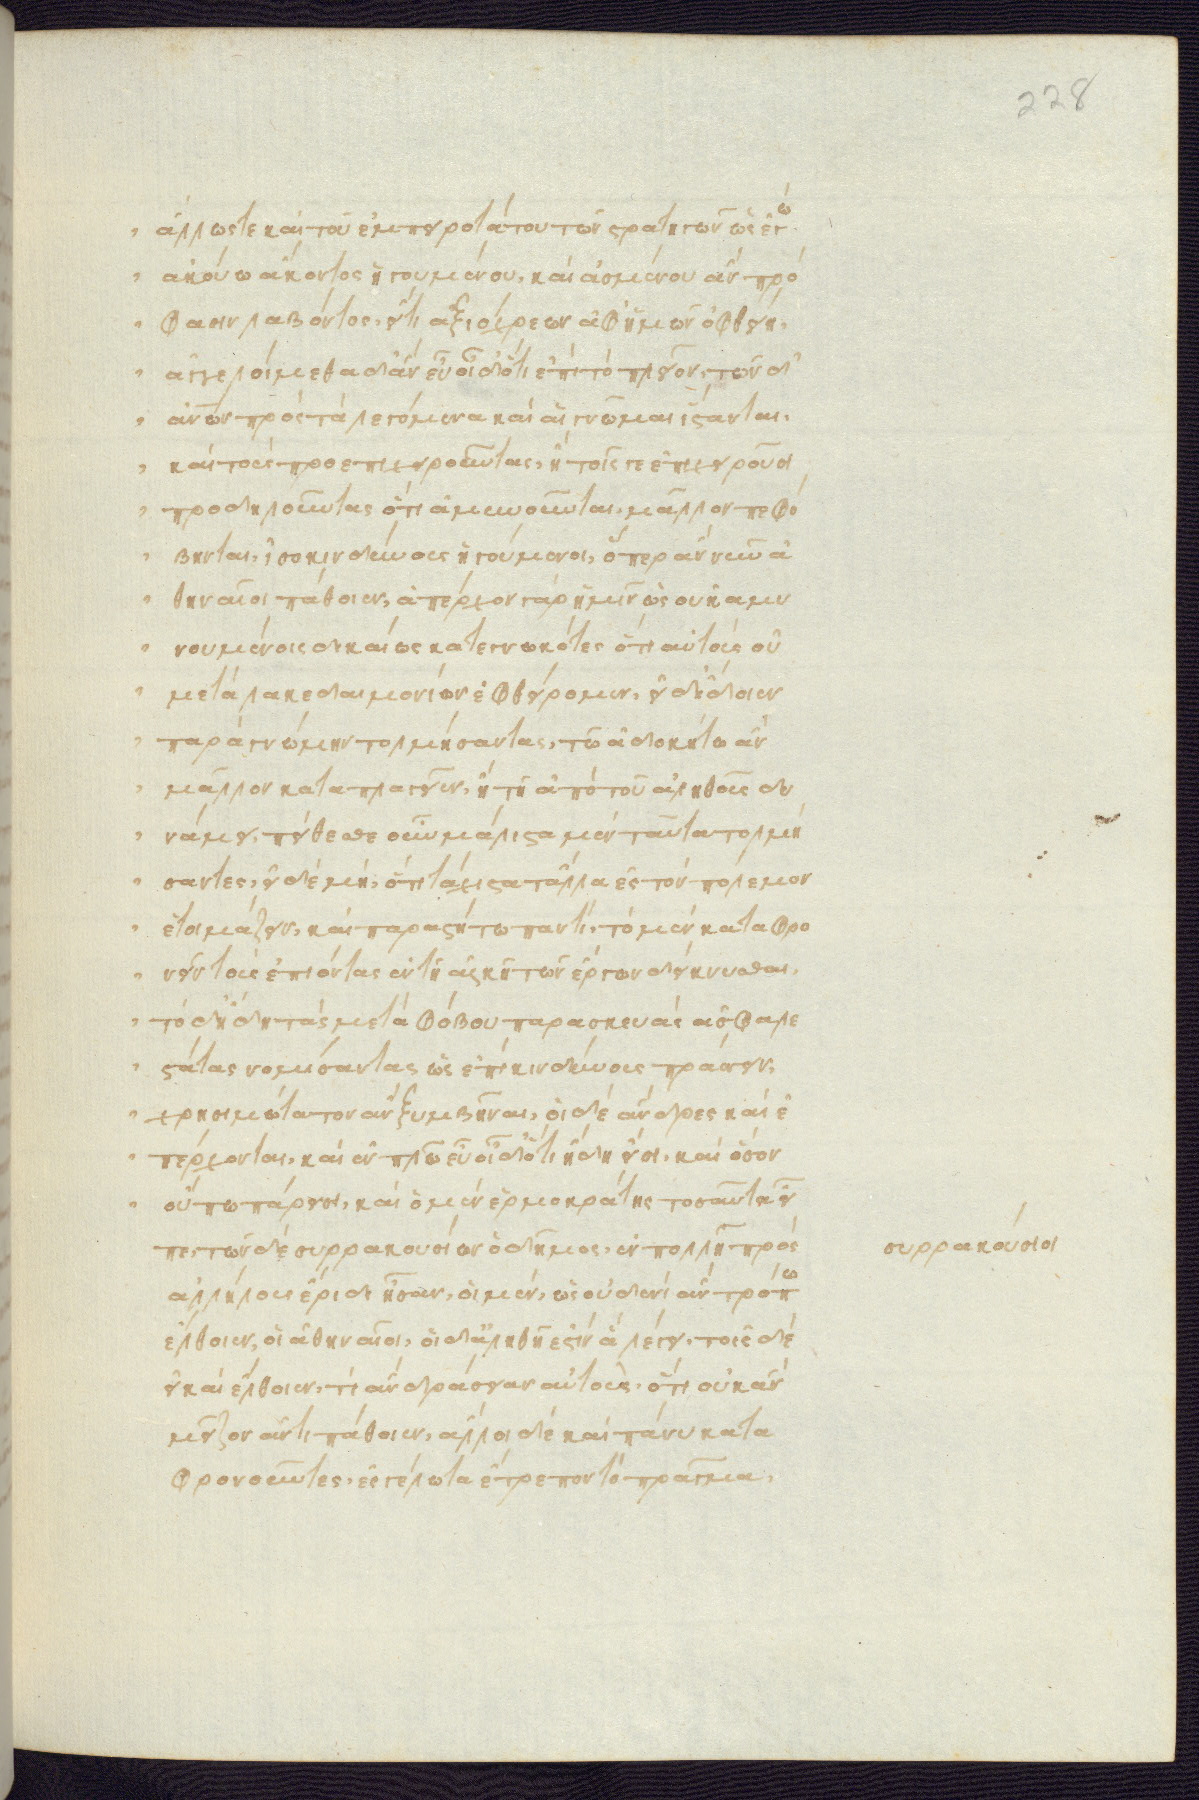 228
, ἄλλως τε καὶ τοῦ ἐμπειροτάτου τῶν στρατηγῶν ὡς ἐγὼ
, ἀκούω ἄκοντος ἡγουμένου, καὶ ἀσμένου ἂν πρό
, φασιν λαβόντος, εἴ τι ἀξιόχρεων ἀφ' ἡμῶν ὀφθείη,
, ἀγγελοίμεθα δ' ἂν εὖ οἶδ' ὅτι ἐπὶ τὸ πλεῖον, τῶν δ'
, ἀνων πρὸς τὰ λεγόμενα καὶ αἱ γνῶμαι ἵστανται,
, καὶ τοὺς προεπιχειροῦντας, ἢ τοῖς γε ἐπιχειροῦσι
, προδηλοῦντας ὅτι ἀμυνοῦνται, μᾶλλον πεφό
, βηνται, ἰσοκινδύνους ἡγούμενοι, ὅπερ ἂν νῦν ἀ
, θηναῖοι πάθοιεν, ἐπέρχονται γὰρ ἡμῖν ὡς οὐκ ἀμυ
, νουμένοις δικαίως κατεγνωκότες ὅτι αὐτοὺς οὐ
, μετὰ λακεδαιμονίων ἐφθείρομεν, εἰ δ' ἴδοιεν
, παρὰ γνώμην τολμήσαντας, τῷ ἀδοκήτῳ ἂν
, μᾶλλον καταπλαγεῖεν, ἢ τῇ ἀπὸ τοῦ ἀληθοῦς δυ
, νάμει, πείθεσθε οὖν μάλιστα μὲν ταῦτα τολμή
, σαντες, εἰ δὲ μή, ὅτι τάχιστα τἄλλα ἐς τὸν πόλεμον
, ἑτοιμάζειν, καὶ παραστήτω παντί, τὸ μὲν καταφρο
, νεῖν τοὺς ἐπιόντας ἐν τῇ ἀλκῇ τῶν ἔργων δείκνυσθαι,
, τὸ δ' ἤδη τὰς μετὰ φόβου παρασκευὰς ἀσφαλε
, στάτας νομίσαντας ὡς ἐπὶ κινδύνοις πράσσειν,
, χρησιμώτατον ἂν ξυμβῆναι, οἱ δὲ ἄνδρες καὶ ἐ
, πέρχονται, καὶ ἐν πλῷ εὖ οἶδ' ὅτι ἤδη εἰσί, καὶ ὅσον
, οὔπω πάρεισι, καὶ ὁ μὲν ἑρμοκράτης τοσαῦτα εἶ
πε, τῶν δὲ συρρακουσίων ὁ δῆμος, ἐν πολλῇ πρὸς
ἀλλήλους ἔριδι ἦσαν, οἱ μὲν, ὡς οὐδενὶ ἂν τρόπῳ
ἔλθοιεν, οἱ ἀθηναῖοι, οἱ δ' ἀληθῆ ἐστὶν ἃ λέγει, τοῖς δὲ
εἰ καὶ ἔλθοιεν, τί ἂν δράσειαν αὐτούς, ὅτι οὐκ ἂν
μεῖζον ἀντιπάθοιεν, ἄλλοι δὲ καὶ πάνυ κατα
φρονοῦντες, ἐς γέλωτα ἔτρεπον τὸ πρᾶγμα,
συρρακούσιοι